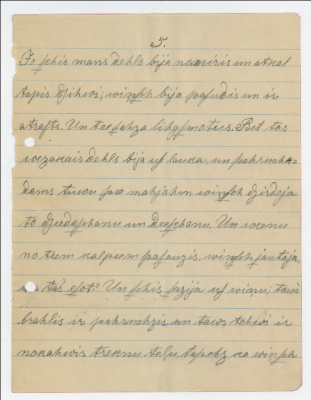 5.
Jo schis mans dehls bija nomiris un atkal
tapis dzihws; winsch bija pasudis un ir
atrasts. Un tee sahza lihgsmotees. Bet tas
wezakais dehls bija us lauka, un pahrnahk-
dams tuwu pee mahjahm winsch dzirdeja
to dzeedaschanu un dseeschanu. Un weenu
no teem kalpeem pasauzis, winsch jautaja,
kas tas esot? Un schis sazija us winu; taws
brahlis ir pahrnahzis un taws tehws ir
nokahwis treknu telu tapehz ka winsch